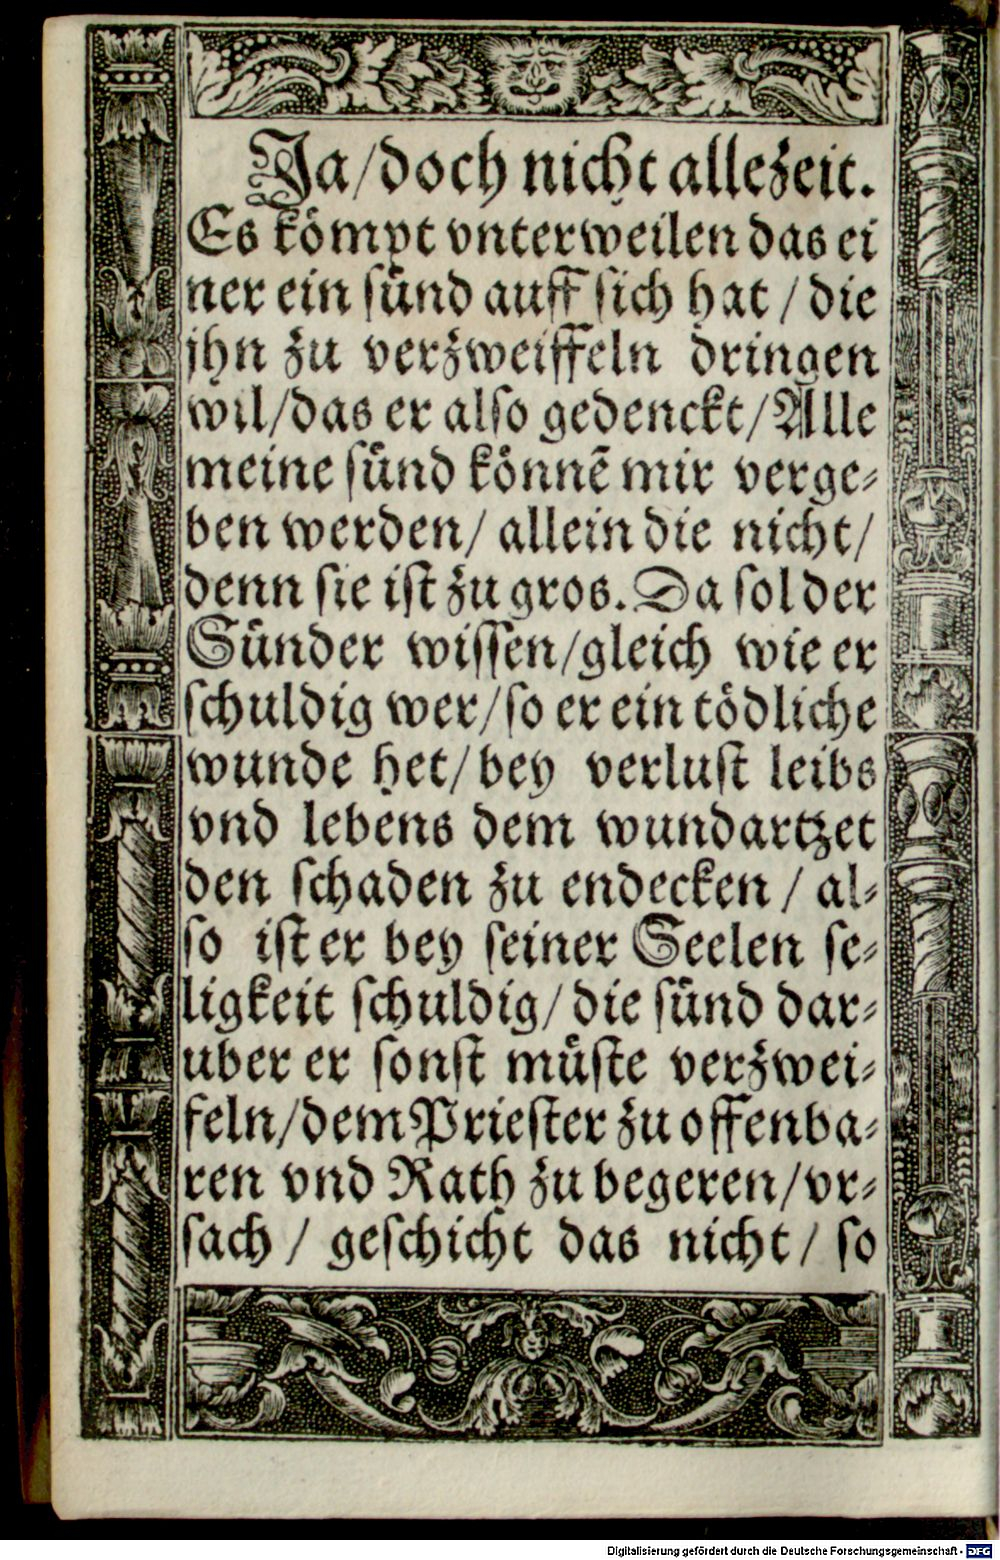 Ja/doch nicht allezeit.
Es kömpt vnterweilen das ei
ner ein sünd auff sich hat / die
jhn zu verzweiffeln dringen
wil/das er also gedenckt/Alle
meine sünd können̄ mir verge⸗
ben werden/ allein die nicht/
denn sie ist zu gros. Da sol der
Sünder wissen/gleich wie er
schuldig wer/so er ein tödliche
wunde het/bey verlust leibs
vnd lebens dem wundartzet
den schaden zu endecken / al⸗
so ist er bey seiner Seelen se⸗
ligkeit schuldig/ die sünd dar⸗
uber er sonst müste verzwei⸗
feln/dem Priester zu offenba⸗
ren vnd Rath zu begeren/vr⸗
sach / geschicht das nicht/ so
Digitalisierung gefördert durch die Deutsche Forschungsgemeinschaft - DFG